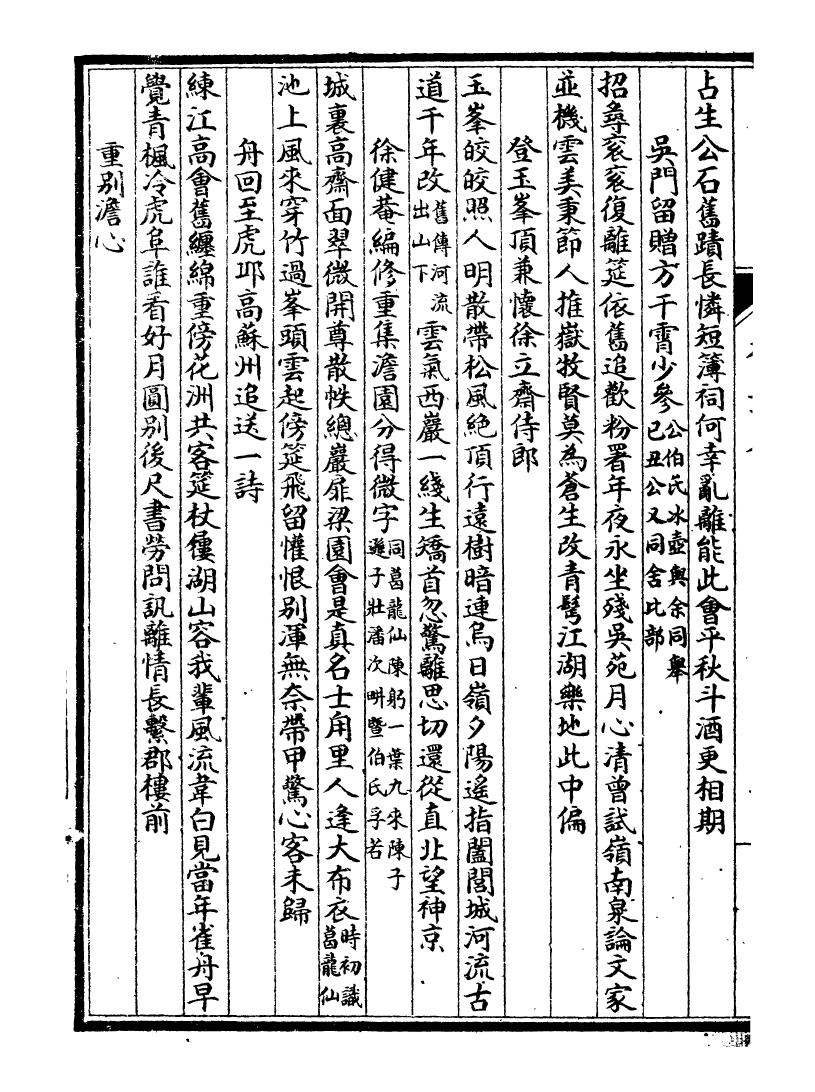 占生公石舊蹟長憐短簿祠何幸亂離能此會平秋斗酒更相期
吳門留贈方干霄少參公伯氏冰壺與余同舉己丑公又同舍比部
招尋衮衮復離筵依舊追歡粉署年夜永坐殘吳苑月心清曾試嶺南泉論文家
並機雲美秉節人推嶽牧賢莫為蒼生改青鬢江湖樂地此中偏
登玉峯頂兼懷徐立齋侍郎
玉峯皎皎照人明散帶松風絕頂行遠樹暗連烏日嶺夕陽遙指闔閭城河流古
道千年改舊傳河流出山下雲氣西巖一綫生矯首忽驚離思切還從直北望神京
徐健菴編修重集澹園分得微字同葛龍仙陳躬一葉九來陳子遜子壯潘次畊暨伯氏孚若
城裏高齋面翠微開尊散帙總巖扉梁園會是真名士甪里人逢大布衣時初識葛龍仙
池上風來穿竹過峯頭雲起傍筵飛留懽恨别渾無奈帶甲驚心客未歸
舟回至虎邱高蘇州追送一詩
練江高會舊纏綿重傍花洲共客筵杖履湖山容我輩風流韋白見當年雀舟早
覺青楓冷虎阜誰看好月圓別後尺書勞問訊離情長繫郡樓前
重別澹心